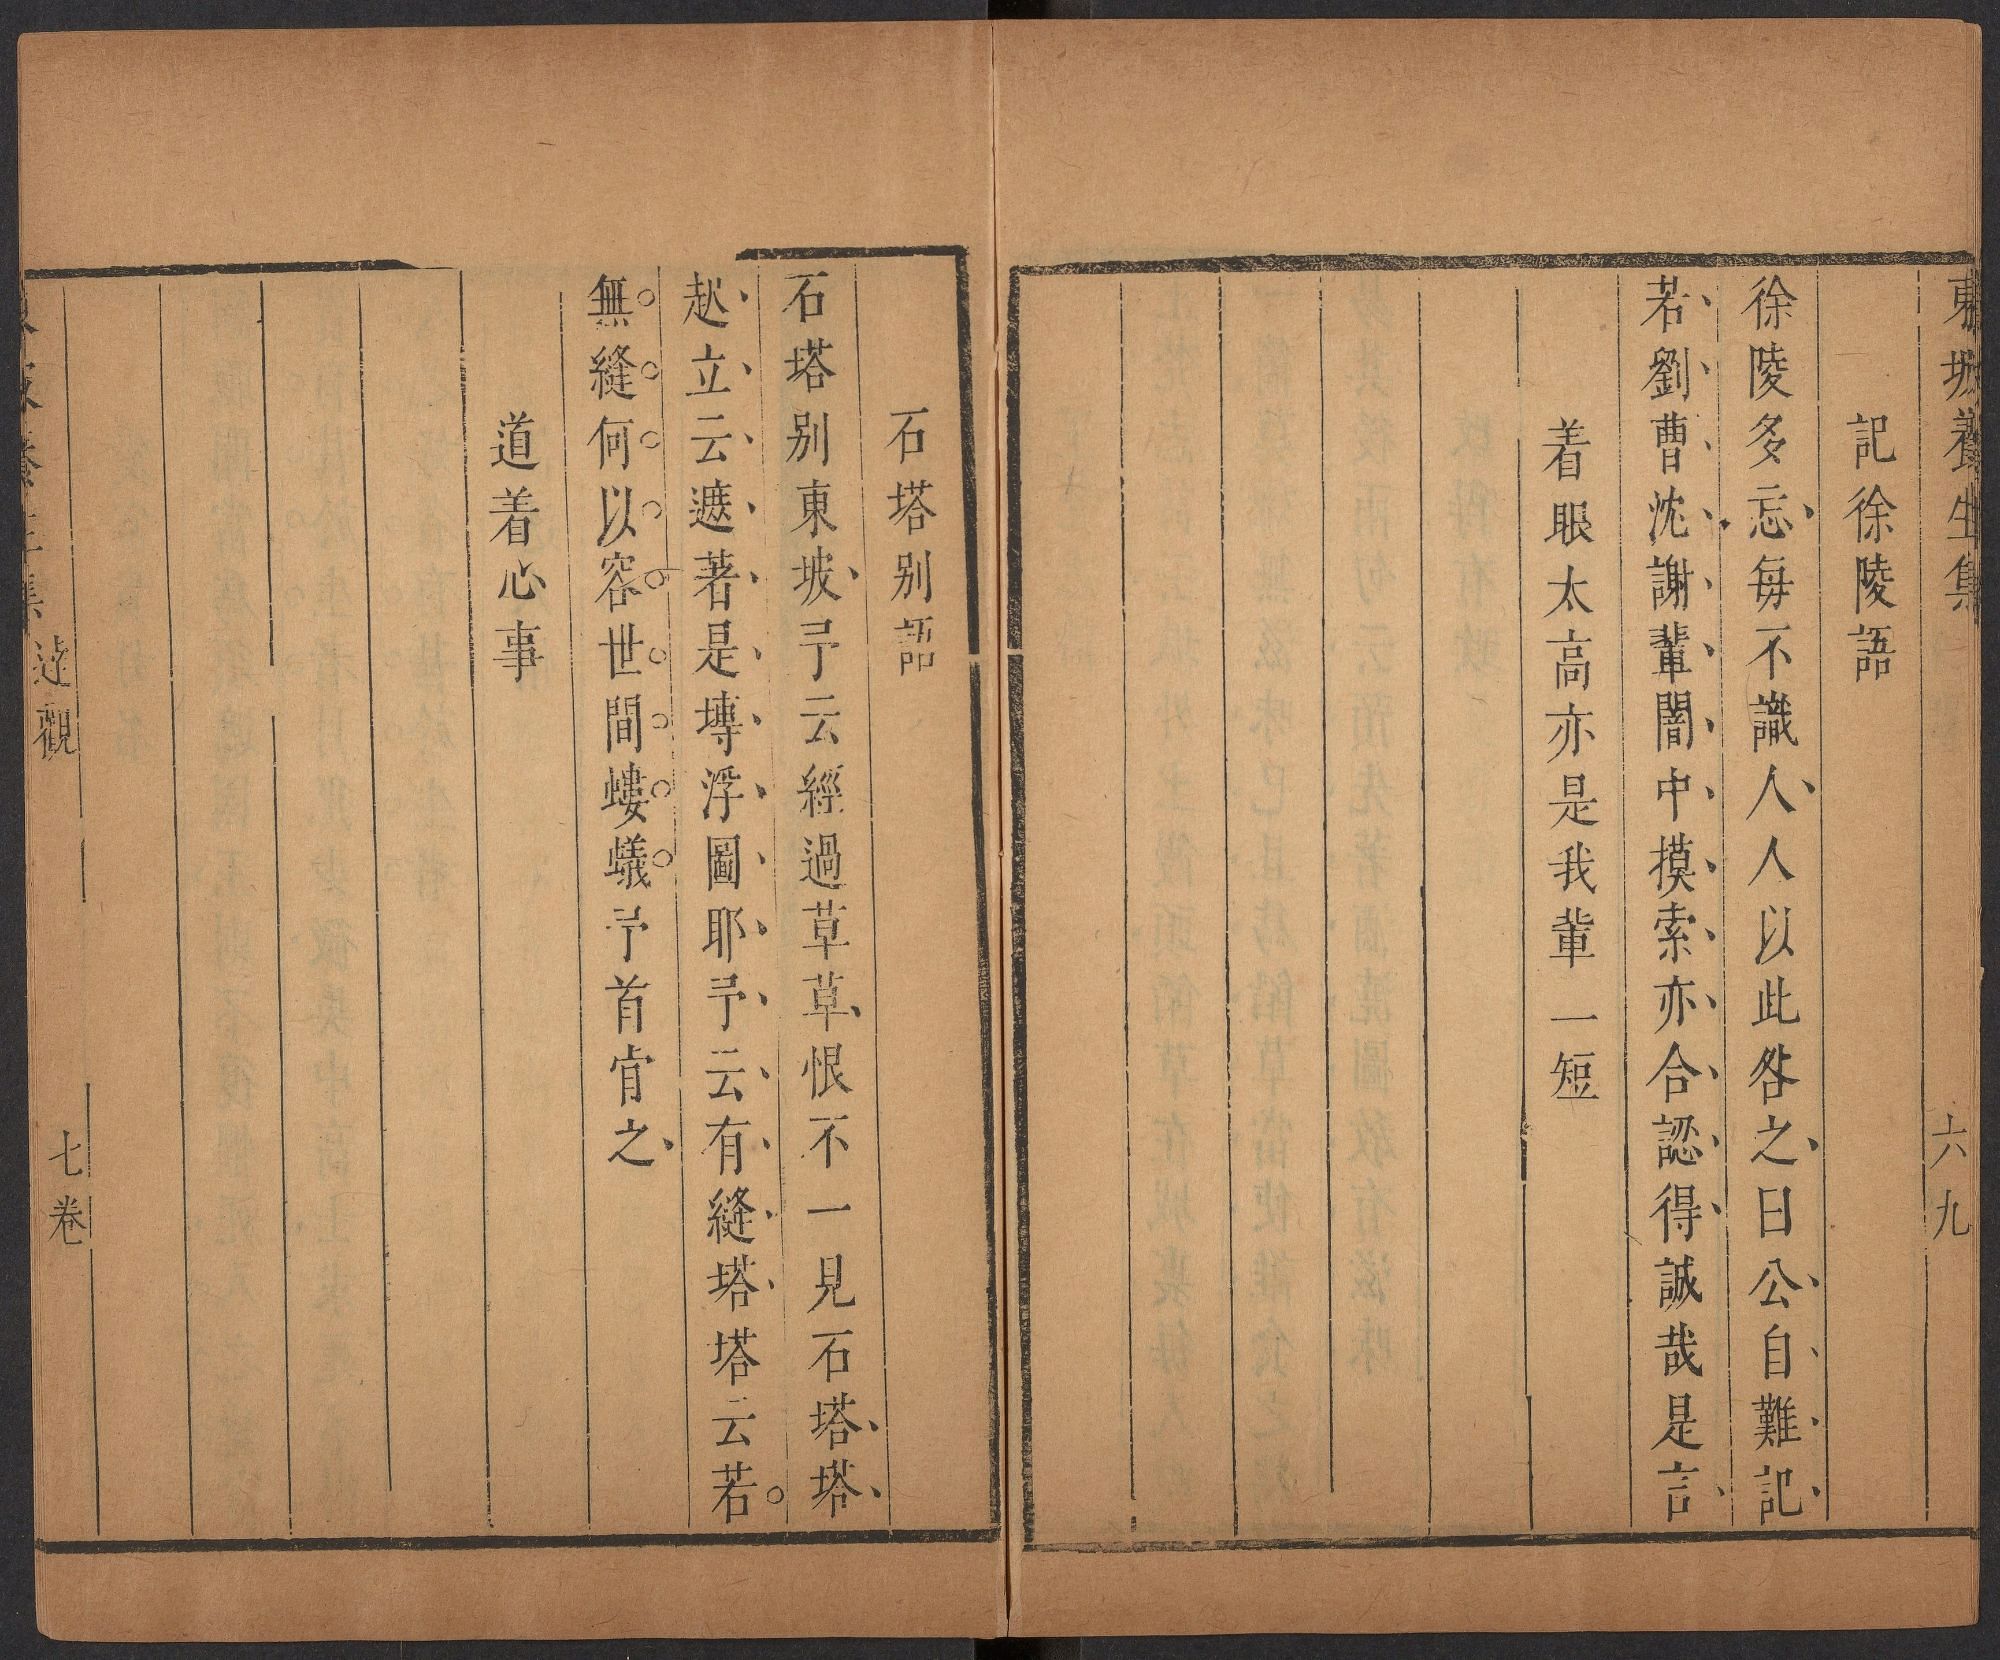 東坡養生集
六九
記徐陵語
徐陵多忘每不識人人以此咎之曰公自難記
若劉曹沈謝輩闇中摸索亦合認得誠哉是言
着眼太高亦是我輩一短
石塔別語
石塔別東坡予云經過草草恨不一見石塔塔
起立云遮著是塼浮圖耶予云有縫塔塔云若
無縫何以容世間螻蟻予首肯之
道着心事
集
達觀
七卷